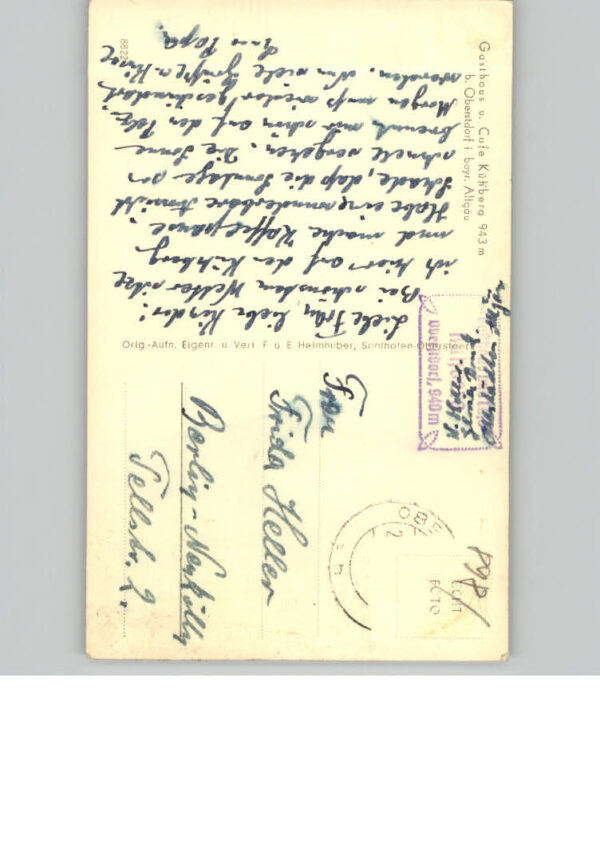 Gasthaus u. Cafe Kühberg 943 m
b. Oberstdorf i. bayr. Allgäu
Liebe Frau, liebe Kinder!
Bei schönsten Wetter sitze
ich hier auf der Kühberg
und mache Kaffeepause.
Habe eine wunderbare Aussicht
Schade, daß die Sonntage so
schnell vergehen. Die Sonne
brennt mir schön auf den Pelz.
Morgen muß wieder
werden. Nun viele Grüße u. Küsse
Euer Papa.
Orig.-Aufn. Eigent. u. Verl. F. u. E. Heimhuber, Sonthofen-Oberstdorf
Oberstdorf, 940m
ECHT
FOTO
Frau
Frida Heller
Berlin-Neukölln
Tellstr. 2.